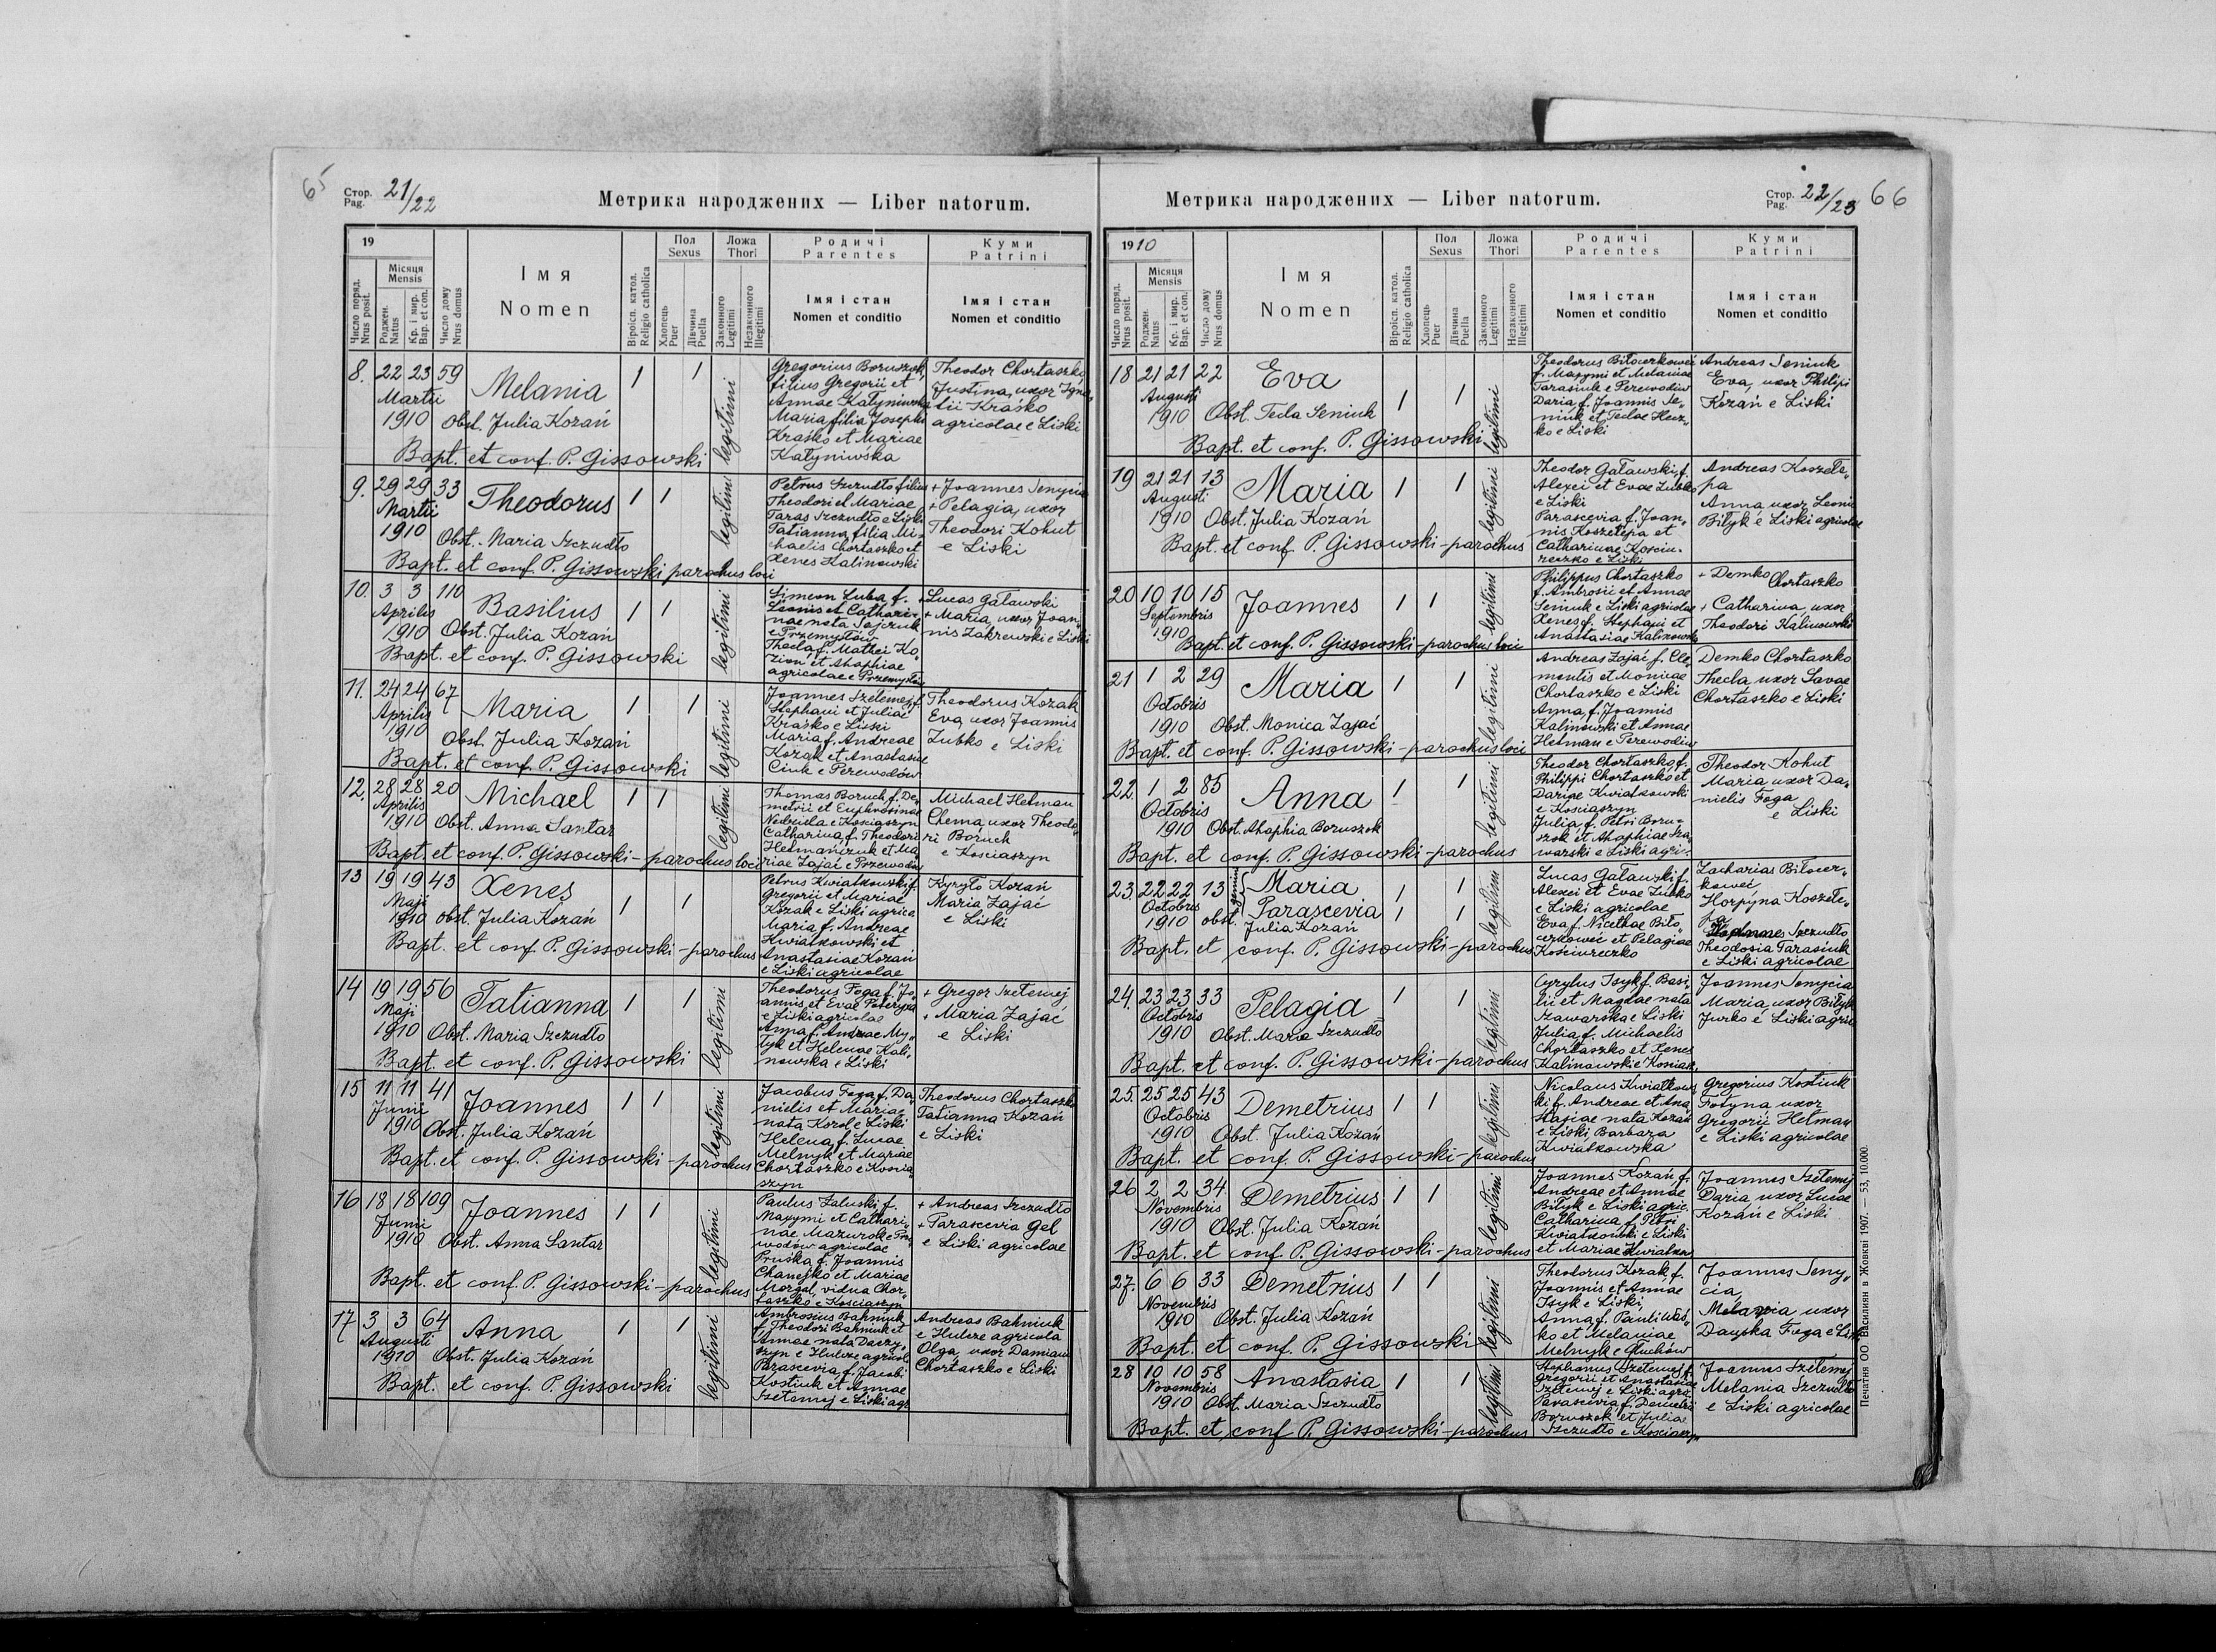 65
Стор.
Pag.
21/22
Метрика народжених — Liber natorum.
19
Число поряд.
Nrus posit.
Місяця
Mensis
Роджен.
Natus
Кр. і мир.
Bap. et con.
Число дому
Nrus domus
Імя
Nomen
Віроісп. катол.
Religio catholica
Пол
Sexus
Хлопець
Puer
Дівчина
Puella
Ложа
Thori
Законного
Legitimi
Незаконного
Illegitimi
Родичі
Parentes
Імя і стан
Nomen et conditio
Куми
Patrini
Імя і стан
Nomen et conditio
8. 22 23 59 Melania 1 1 legitimi
Martii
1910 Obst. Julia Kozań
Bapt. et conf. P. Gissowski
Gregorius Boruszok,
filius Gregorii et
Annae Katyniwska
Maria filia Josephi
Kraśko et Mariae
Katyniwska
Theodor Chortaszko
Justina, uxor Igna„
tii Kraśko
agricolae e Liski
9. 29 29 33 Theodorus 1 1 legitimi
Martii
1910 Obst. Maria Szczudło
Bapt. et conf. P. Gissowski parochus loci
Petrus Szczudło filius
Theodori et Mariae
Taras Szczudło e Liski
Tatianna, filia Mi„
chaelis Chortaszko et
Xenes Kalinowski
+ Joannes Senycia
+ Pelagia, uxor
Theodori Kohut
e Liski
10. 3 3 110 Basilius 1 1 legitimi
Aprilis
1910 Obst. Julia Kozań
Bapt. et conf. P. Gissowski
Simeon Luba f.
Leonis et Cathari„
nae nata Sajczuk
e Przemysłów
Thecla f. Mathei Ko„
zion et Ahaphiae
agricolae e Przemysłów
+ Lucas Gaławski
+ Maria, uxor Joan„
nis Zakrewski e Liski
11. 24 24 67 Maria 1 1 legitimi
Aprilis
1910
Obst. Julia Kozań
Bapt. et conf. P. Gissowski
Joannes Szełemej f.
Stephani et Juliae
Kraśko e Liski
Maria f. Andreae
Kozak et Anastasiae
Ciuk e Perewodów
Theodorus Kozak
Eva uxor Joannis
Zubko e Liski
12. 28 28 20 Michael 1 1 legitimi
Aprilis
1910 Obst. Anna Santar
Bapt. et conf. P. Gissowski - parochus loci
Thomas Boruch f. De„
metrii et Euphrosinae
Nedziela e Kosciaszyn
Catharina, f. Theodori
Hetmańczuk et Ma„
riae Zajać e Przewodów
Michael Hetman
Chema uxor Theodo„
ri Boruch
e Kosciaszyn
13 19 19 43 Xenes 1 1
Maji
1910 Obst. Julia Kozań
Bapt. et conf. P. Gissowski - parochus
Petrus Kwiatkowski f.
Gregorii et Mariae
Kozak e Liski agrico
Maria f. Andreae
Kwiatkowski et
Anastasiae Kozań
e Liski agricolae
Kyryło Kozań
Maria Zajać
e Liski
14 19 19 56 Tatianna 1 1 legitimi
Maji
1910 Obst. Maria Szczudło
Bapt. et conf. P. Gissowski
Theodorus Foga f. Jo„
annis et Evae
e Liski agricolae
Anna f. Andreae My„
tyk et Helenae Kali„
nowska e Liski
+ Gregor Szełemej
+ Maria Zajać
e Liski
15 11 11 41 Joannes 1 1 legitimi
Junii
1910 Obst. Julia Kozań
Bapt. et conf. P. Gissowski - parochus
Jacobus Foga f. Da„
nielis et Mariae
nata Korol e Liski
Helena, f. Lucae
Melnyk et Mariae
Chortaszko e Koscia„
szyn
Theodorus Chortaszko
Tatianna Kozań
e Liski
16 18 18 109 Joannes 1 1 legitimi
Junii
1910 Obst. Anna Santar
Bapt. et conf. P. Gissowski - parochus
Paulus Załuski f.
Maxymi et Cathari„
nae Mazurok e Prze„
wodów agricolae
Pruska f. Joannis
Chanejko et Mariae
Morgal, vidua Chor„
taszko e Kosciaszyn
+ Andreas Szczudło
+ Parascevia Gal
e Liski agricolae
17 3 3 64 Anna 1 1 legitimi
Augusti
1910 Obst. Julia Kozań
Bapt. et conf. P. Gissowski
Ambrosius Bahniuk
f. Theodori Bahniuk et
Annae nata Daczy„
szyn e Hulcze agricol
Parascevia, f. Jacobi
Kostiuk et Annae
Szełemej e Liski agr
Andreas Bahniuk
e Hulcze agricola
Olga, uxor Damiani
Chortaszko e Liski
Метрика народжених — Liber natorum.
Стор.
Pag.
22/23
66
1910
Число поряд.
Nrus posit.
Місяця
Mensis
Роджен.
Natus
Кр. і мир.
Bap. et con.
Число дому
Nrus domus
Імя
Nomen
Віроісп. катол.
Religio catholica
Пол
Sexus
Хлопець
Puer
Дівчина
Puella
Ложа
Thori
Законного
Legitimi
Незаконного
Illegitimi
Родичі
Parentes
Імя і стан
Nomen et conditio
Куми
Patrini
Імя і стан
Nomen et conditio
18 21 21 22 Eva 1 1 legitimi
Augusti
1910 Obst. Tecla Seniuk
Bapt. et conf. P. Gissowski
Theodorus Biłocerkoweć
f. Maxymi et Melaniae
Tarasiuk e Perewodów
Daria, f. Joannis Se„
niuk et Teclae Hecz„
ko e Liski
Andreas Seniuk
Eva, uxor Philipi
Kozań e Liski
19 21 21 13 Maria 1 1 legitimi
Augusti
1910 Obst. Julia Kozań
Bapt. et conf. P. Gissowski - parochus
Theodor Gaławski, f.
Alexei et Evae Zubko
e Liski
Parascevia f. Joan„
nis Koszełepa et
Catharinae Kosciu„
reczko e Liski
Andreas Koszełe„
pa
Anna uxor Leonis
Biłyk e Liski agricolae
20 10 10 15 Joannes 1 1 legitimi
Septembris
1910
Bapt. et conf. P. Gissowski - parochus loci
Philippus Chortaszko
f. Ambrosii et Annae
Seniuk e Liski agricolae
Xenes f. Stephani et
Anastasiae Kalinowska
+ Demko Chortaszko
+ Catharina, uxor
Theodori Kalinowski
21 1 2 29 Maria 1 1 legitimi
Octobris
1910 Obst. Monica Zajać
Bapt. et conf. P. Gissowski - parochus loci
Andreas Zajać f. Cle„
mentis et Monicae
Chortaszko e Liski
Anna, f. Joannis
Kalinowski et Annae
Hetman e Perewodów
Demko Chortaszko
Thecla uxor Savae
Chortaszko e Liski
22. 1 2 85 Anna 1 1 legitimi
Octobris
1910 Obst. Ahaphia Boruszok
Bapt. et conf. P. Gissowski - parochus
Theodor Chortaszko f.
Philippi Chortaszko et
Dariae Kwiatkowski
e Kosciaszyn
Julia, f. Petri Boru„
szok et Ahaphiae Sza„
warski e Liski agri„
Theodor Kohut
Maria uxor Da„
nielis Foga
e Liski
23. 22 22 13 gemini Maria 1 1 legitimi
Octobris Parascevia 1 1
1910 obst. Julia Kozań
Bapt. et conf. P. Gissowski - parochus
Lucas Gaławski f.
Alexei et Evae Zubko
e Liski agricolae
Eva f. Nicethae Biło„
cerkoweć et Pelagiae
Kosciureczko
Zacharias Biłocer„
koweć
Horpyna Koszełe„
pa
Szczudło
Theodosia Tarasiuk
e Liski agricolae
24. 23 23 33 Pelagia 1 1 legitimi
Octobris
1910 Obst. Maria Szczudło
Bapt. et conf. P. Gissowski - parochus
Cyrylus Isyk f. Basi„
lii et Magdae nata
Szawarska e Liski
Julia, f. Michaelis
Chortaszko et Xenes
Kalinowski e Kosciasz.
Joannes Senycia
Maria, uxor Biłyk
Jurko e Liski agric
25. 25 25 43 Demetrius 1 1 legitimi
Octobris
1910 Obst. Julia Kozań
Bapt. et conf. P. Gissowski - parochus
Nicolaus Kwiatkows
ki f. Andreae et Ana„
stasiae nata Kozań
e Liski Barbara
Kwiatkowska
Gregorius Kostiuk
Fotyna, uxor
Gregorii Hetman
e Liski agricolae
26 2 2 34 Demetrius 1 1 legitimi
Novembris
1910 Obst. Julia Kozań
Bapt. et conf. P. Gissowski - parochus
Joannes Kozań f.
Andreae et Annae
Biłyk e Liski agric.
Catharina f. Petri
Kwiatkowski e Liski
et Mariae Kwiatkow
Joannes Szełemej
Daria uxor Lucae
Kozań e Liski
27. 6 6 33 Demetrius 1 1 legitimi
Novembris
1910 Obst. Julia Kozań
Bapt. et conf. P. Gissowski
Theodorus Kozak f.
Joannis et Annae
Isyk e Liski,
Anna, f. Pauli
ko et Melaniae
Melnyk e Głuchów
Joannes Seny„
cia,
Melania uxor
Danska Foga e Liski
28 10 10 58 Anastasia 1 1 legitimi
Novembris
1910 Obst. Maria Szczudło
Bapt. et conf P. Gissowski - parochus
Stephanus Szełemej f.
Gregorii et Anastasiae
Szełemej e Liski agro
Parascevia f. Demetri
Boruszok et Juliae
Szczudło e Kosciaszyn
Joannes Szełemej
Melania Szczudło
e Liski agricolae
Печатня ОО Василиян в Жовкві 1907. — 53, 10.000.